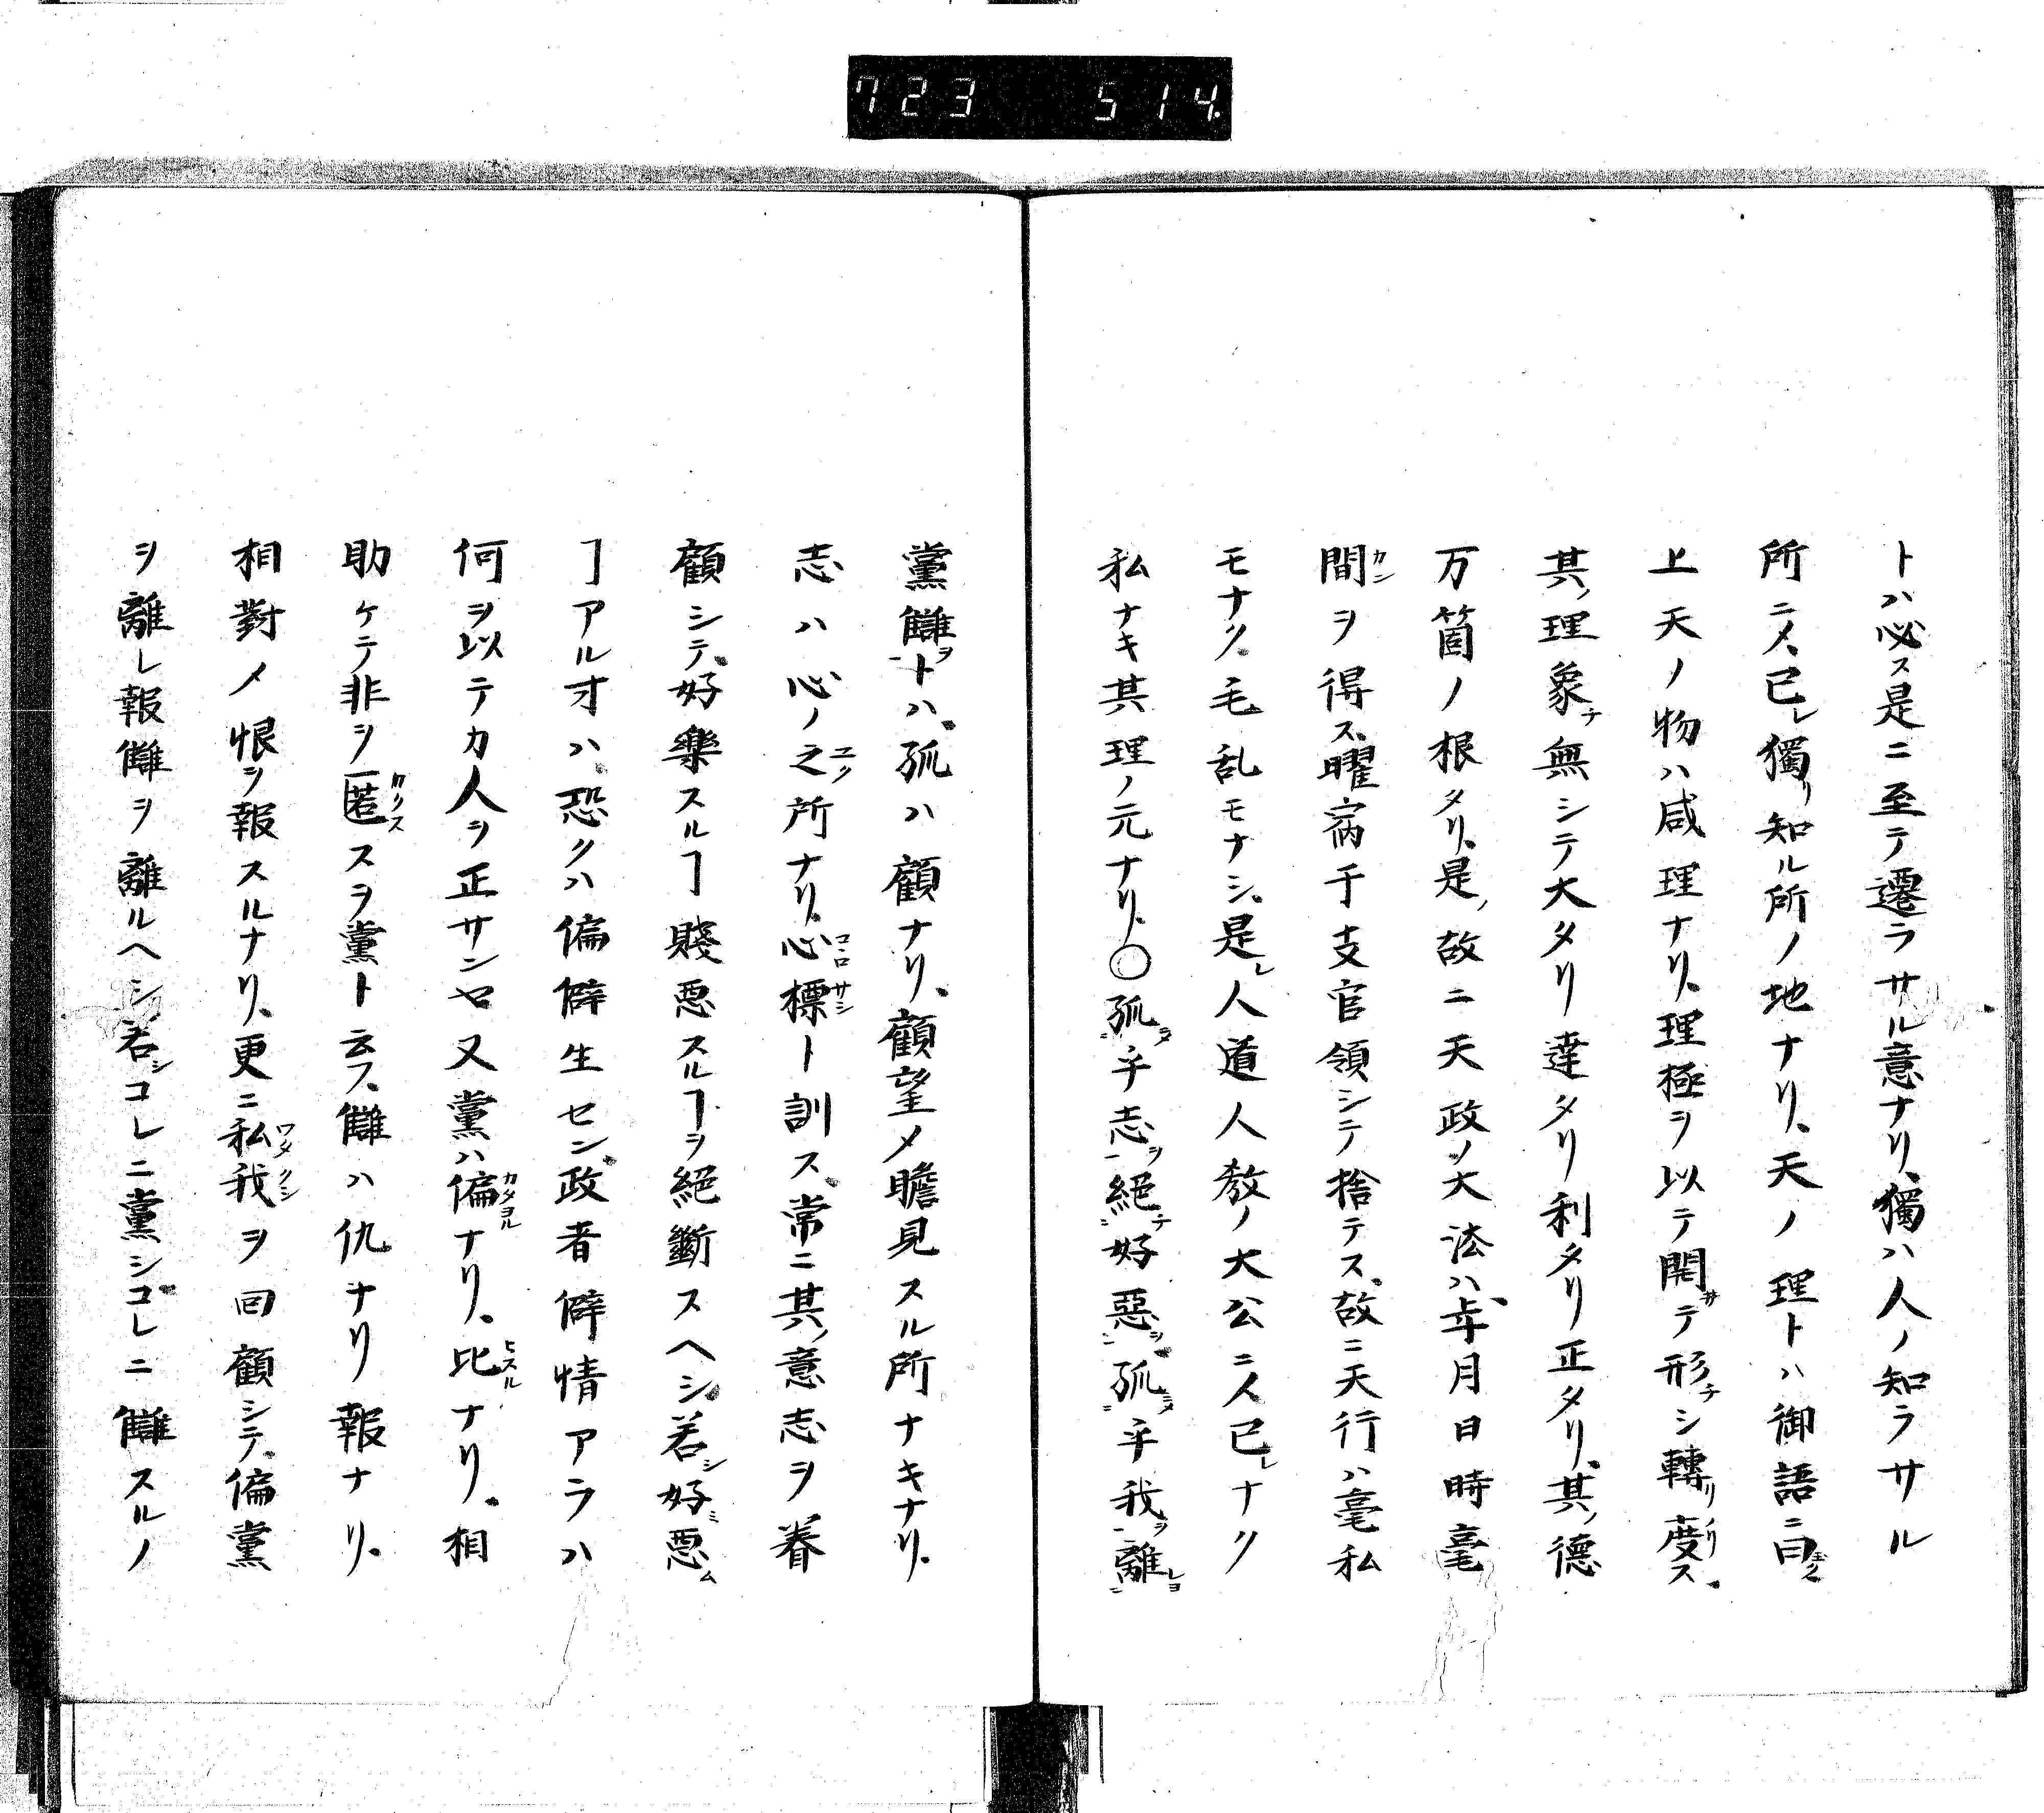 723 514
トハ必ス是ニ至テ遷ラサル意ナリ、獨ハ人ノ知ラサル
所ニ〆、已レ獨リ知ル所ノ地ナリ、天ノ理トハ御語ニ曰
上天ノ物ハ咸理ナリ、理極ヲ以テ開テ形チシ轉リ度リス、
其ノ理象チ無シテ大タリ達タリ利タリ正タリ、其ノ德
万箇ノ根タリ、是ノ故ニ天政ノ大法ハ、年月日時毫
間ヲ得ス、曜宿干支官領シテ捨テス、故ニ天行ハ毫私
モナク、毛乱モナシ、是レ人道人教ノ大公ニ〆已レナク
私ナキ其理ノ元ナリ、〇孤乎志ヲ絕チ好惡ヲ孤乎我ヲ離レヨ
黨讎ヲトハ、孤ハ顧ナリ、顧望〆瞻見スル所ナキナリ、
志ハ心ノ之所ナリ、心標ト訓ス、常ニ其ノ意志ヲ眷
顧シテ、好樂スルヿ賤悪スルヿヲ絕斷スヘシ、若シ好ミ悪ム
ヿアル才ハ、恐クハ偏僻生セン、政者僻情アラハ
何ヲ以テカ人ヲ正サンヤ又黨ハ偏ナリ、比ナリ、相
助ケテ非ヲ匿スヲ黨ト云フ、讎ハ仇ナリ報ナリ、
相對〆恨ヲ報スルナリ、更ニ私我ヲ回顧シテ、偏黨
ヲ離レ報讎ヲ離ルヘシ、若シコレニ黨シ、コレニ讎スルノ